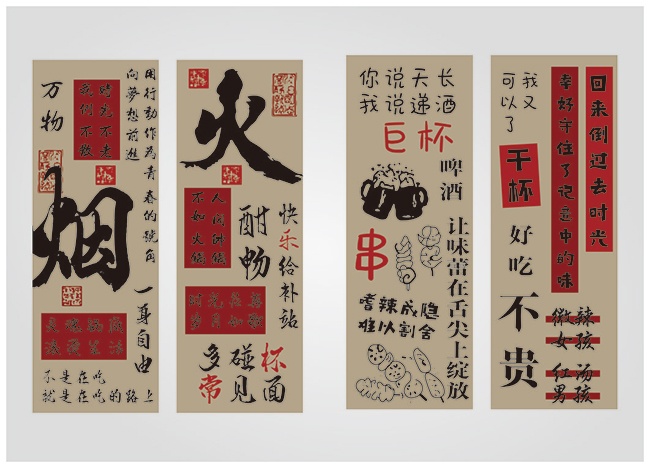 万物
时光不老
我们不散
用行動作為青春的號角
向夢想前進
烟
一身自由
不是在吃
就是在吃的路上
火
人间
不如火锅
酣畅
快乐给补站
多碰杯
常见面
你说天长
我说递酒
巨杯
啤酒
串
让味蕾在舌尖上绽放
嗜辣成隐
难以割舍
我又
可以了
干杯
好吃
不贵
幸好守住了记忆中的味
回来倒过去时光
微辣
女孩
红汤
男孩